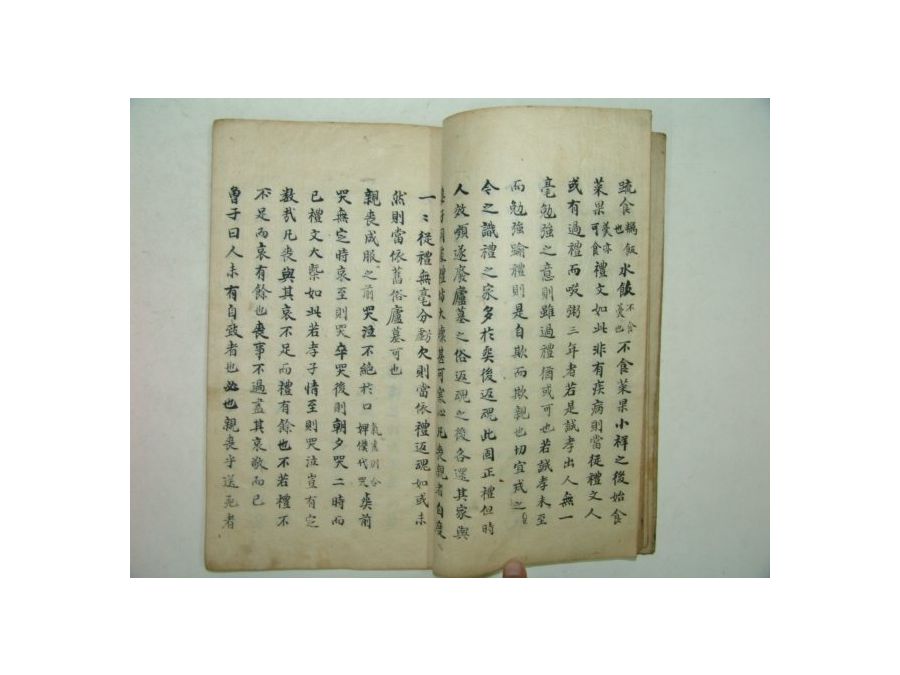 䟽食糲飯也水飮不食羹也不食菜果小祥之後始食
菜果羹亦可食禮文如此非有疾病則當從禮文人
或有過禮而啜粥三年者若是誠孝出人無一
毫勉強之意則雖過禮猶或可也若誠孝未至
而勉強踰禮則是自欺而欺親也切宜戒之
今之識禮之家多於葬後返魂此固正禮但時
人效顰遂廢廬墓之俗返魂之後各還其家與
禮坊大壞甚可寒心凡喪親者自度
一〻從禮無毫分虧欠則當依禮返魂如或未
然則當依舊俗廬墓可也
親喪成服之前哭泣不絶於口氣盡則令婢僕代哭葬前
哭無定時哀至則哭卒哭後則朝夕哭二時而
已禮文大槩如此若孝子情至則哭泣豈有定
數哉凡喪與其哀不足而禮有餘也不若禮不
不足而哀有餘也喪事不過盡其哀敬而已
曾子曰人未有自致者也必也親喪乎送死者